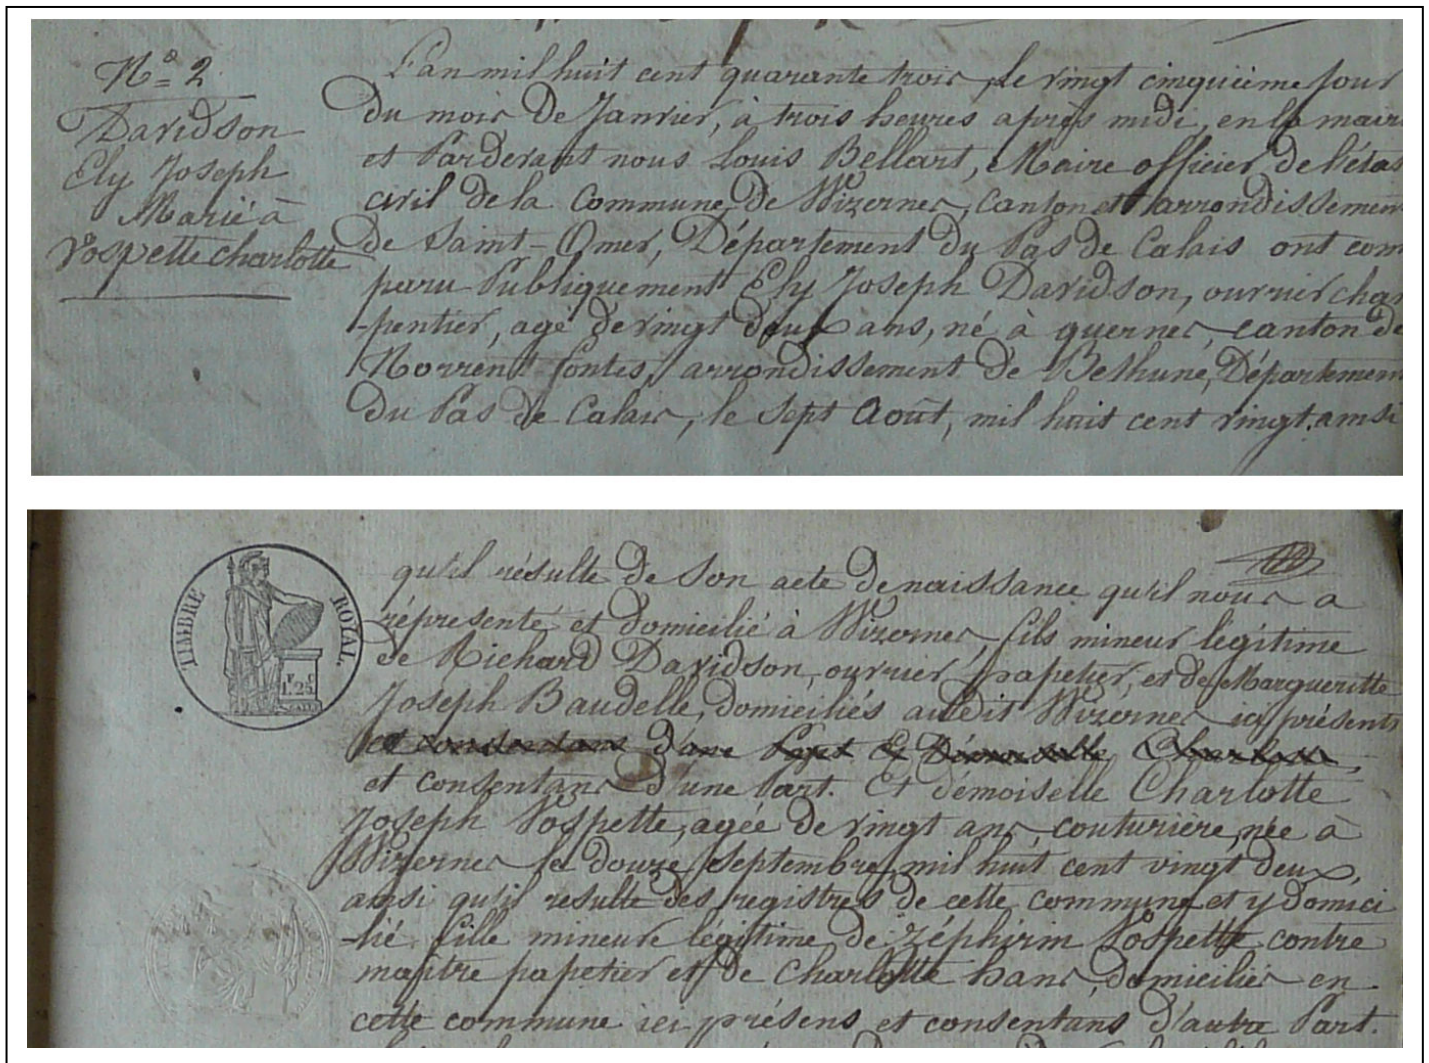 N° 2
Davidson
Ely Joseph
Marié à
Vospette charlotte
L'an mil huit cent quarante trois, le vingt cinquième jour
du mois de Janvier, à trois heures après midi, en la mairi
et Pardevant nous Louis Bellart, Maire officier de l'état
civil de la Commune de Wizernes, Canton et arrondissemen
de Saint-Omer, Département du Pas de Calais ont com
paru Publiquement Ely Joseph Davidson, ouvrier char
-pentier, agé de vingt deux ans, né à quernes, canton de
Norrent fontes, arrondissement de Bethune, Départemen
du Pas de Calais, le sept Août, mil huit cent vingt, ainsi
TIMBRE ROYAL
F. C.
1.25
qu'il résulte de son acte de naissance qu'il nous a
réprésenté et domicilié à Wizernes, fils mineur légitime
de Richard Davidson, ouvrier papetier, et de Margueritte
Joseph Baudelle, domiciliés audit Wizernes ici présents
et consentans d'une Part Et Démoiselle Charlotte,
et consentans d'une Part. Et démoiselle Charlotte
Joseph Vospette, agée de vingt ans couturière, née à
Wizernes le douze septembre mil huit cent vingt deux,
ainsi qu'il resulte des registres de cette commune et y domici
-lié fille mineure légitime de Zéphirin Vospette contre
maître papetier et de Charlotte hans, domiciliés en
cette commune ici présens et consentans d'autre Part.